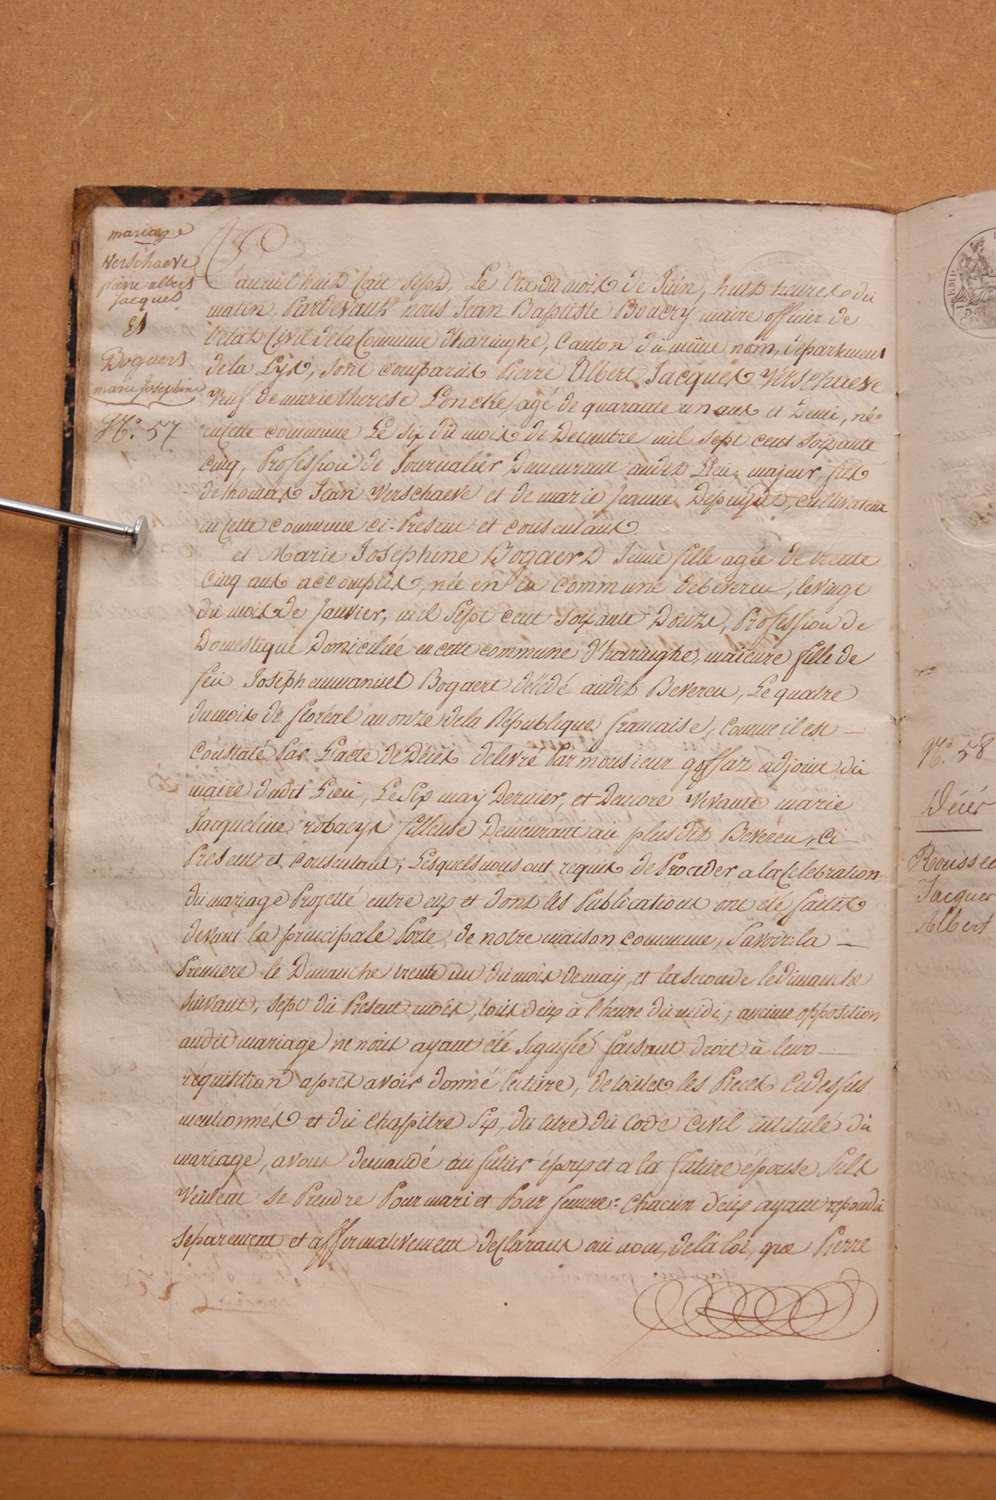 mariage
verschaeve
pierre albert
Jacques
et
Bogaers
marie josephine
N.° 57
L'an mil huit Cent Sept, Le dix du mois de Juin, huit heures du
matin, Pardevant nous Jean Baptiste Bouery maire officier de
l'état Civil de la Commune d'haringhe, Canton du même nom, département
de la Lys, sont comparus Pierre Albert Jacques Verschaeve
Veuf de marie therese Loncke, agé de quarante un ans et Demi, né
en cette commune Le six du mois de Decembre mil sept cent soixante
cinq, Profession de Journalier Demeurant audit Lieu, majeur, fils
de thomas Jean Verschaeve et de marie Jeanne Depuydt, cultivateurs
en cette commune ci-Present et consentant
et Marie Josephine Bogaerd Jeune fille agée de trente
cinq ans accomplis, née en la commune de beveren, le vingt
du mois de Janvier, mil Sept cent Soixante Douze, Profession de
Domestique Domiciliée en cette commune d'haringhe, majeure fille de
feu Joseph emmanuel Bogaert décédé audit Beveren, Le quatre
du mois de floréal an onze de la République française, comme il est
Constaté Par L'acte de Décès délivré Par monsieur goffar adjoint du
maire dudit Lieu, Le Six may Dernier, et Encore Vivante marie
Jacqueline robaeys fileuse Demeurant au plus dit Beveren, ci
Present et consentant; Lesquels nous ont requis de Procéder a la Célébration
du mariage Projetté entre eux et dont les Publications ont été faites
devant la principale Porte de notre maison commune, Savoir: la
Première le Dimanche trente un du mois de may, et la seconde le dimanche
suivant, sept du Présent mois, tous deux à l'heure du midi; aucune opposition
audit mariage ne nous ayant été signifié faisant droit à leur
requisition après avoir donné lecture, de toutes les Pièces ci dessus
mentionnés et du Chapitre Six, du titre du Code Civil intitulé du
mariage, avons demandé au futur époux et a la future epouse s'ils
Veulent se Prendre Pour mari et Pour femme: Chacun d'eux ayant repondu
séparement et affirmativement déclarons au nom de la loi, que Pierre
N.° 58
Décès
Roussee
Jacques
Albert